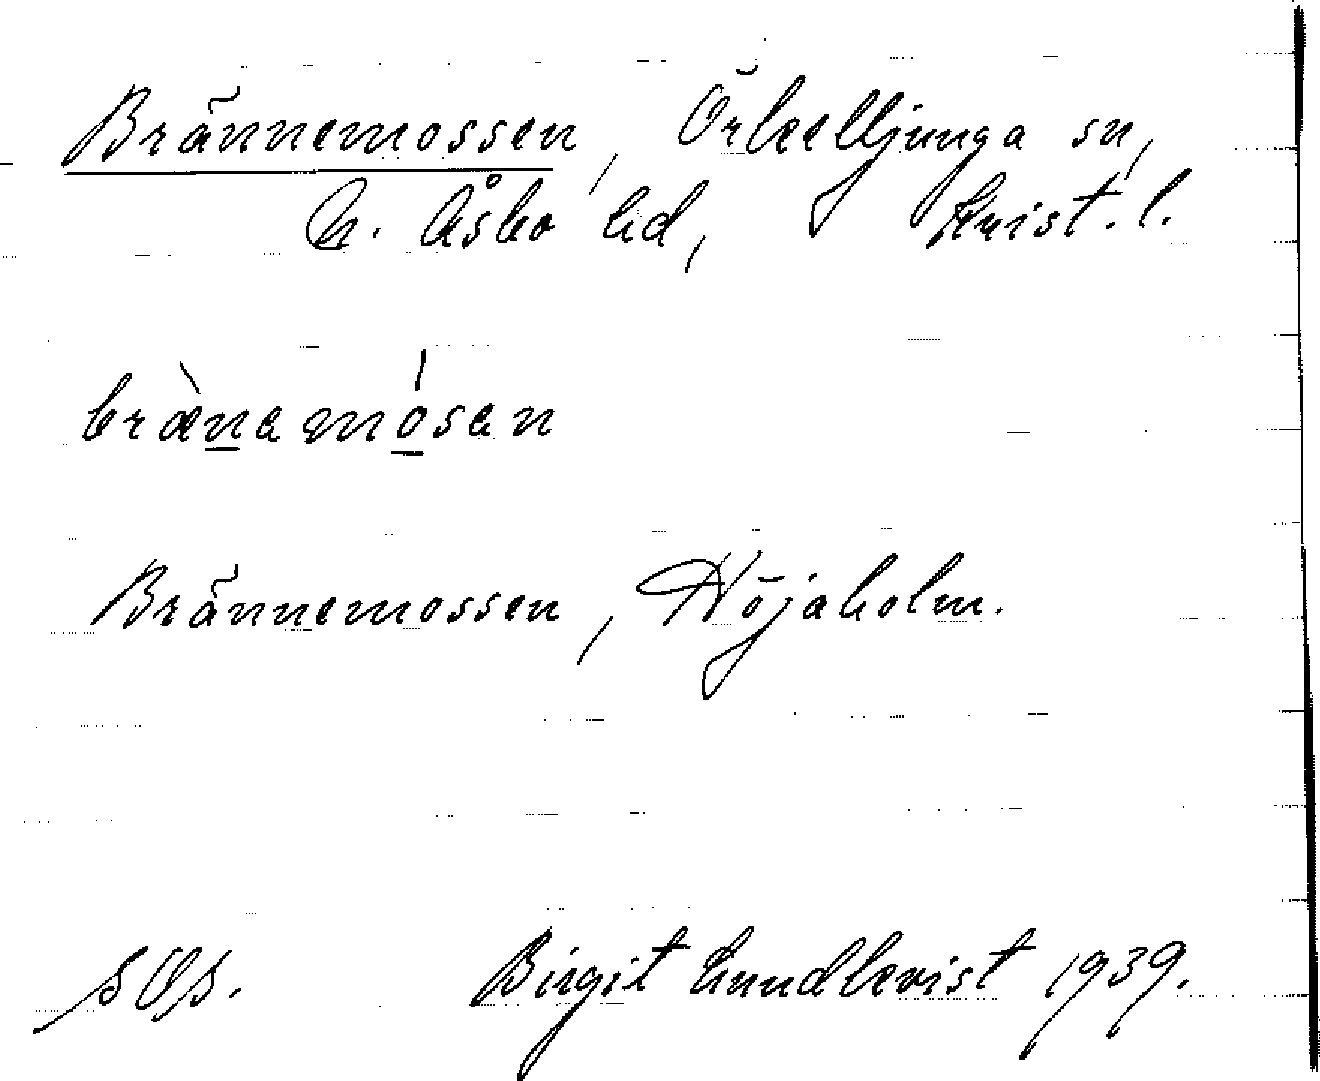 Brännemossen, Örkelljunga sn,
N. Åsbo hd, Krist. l.
brànamósan
Brännemossen, Höjaholm.
sOs. Birgit Lundkvist 1939.